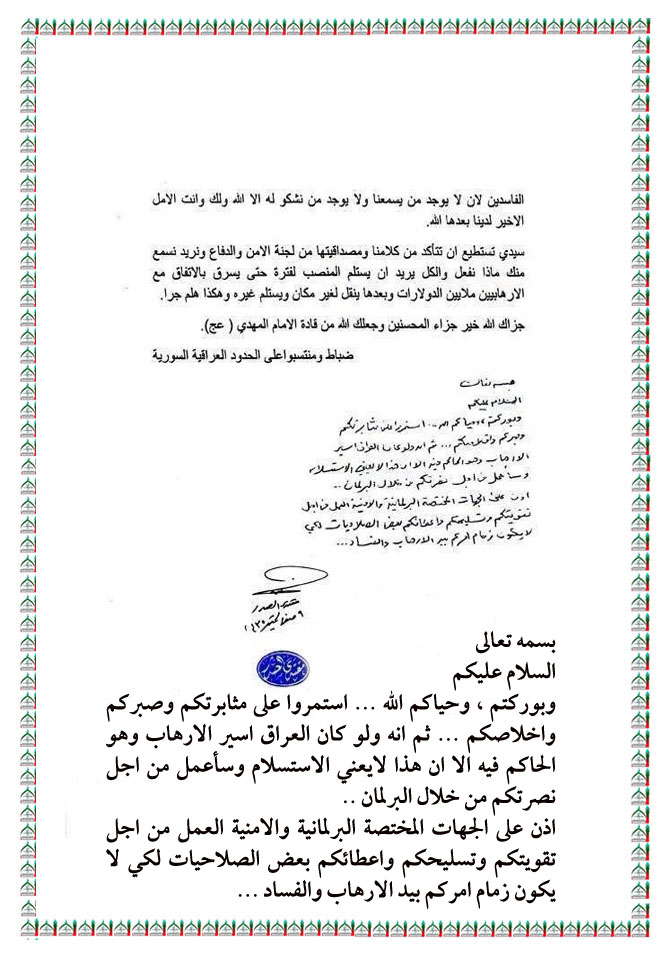 الفاسدين لان لا يوجد من يسمعنا ولا يوجد من نشكو له الا الله ولك وانت الامل
الاخير لدينا بعدها الله.
سيدي تستطيع ان تتأكد من كلامنا ومصداقيتها من لجنة الامن والدفاع ونريد نسمع
منك ماذا نفعل والكل يريد ان يستلم المنصب لفترة حتى يسرق بالاتفاق مع
الارهابيين ملايين الدولارات وبعدها ينقل لغير مكان ويستلم غيره وهكذا هلم جرا.
جزاك الله خير جزاء المحسنين وجعلك الله من قادة الامام المهدي ( عج).
ضباط ومنتسبوا على الحدود العراقية السورية
بسمه تعالى
السلام عليكم
وبوركتم وحياكم الله ... استمروا على مثابرتكم
وصبركم واخلاصكم ... ثم انه ولو كان العراق اسير
الارهاب وهو الحاكم فيه الا ان هذا لا يعني الاستسلام
وسأعمل من اجل نصرتكم من خلال البرلمان ..
اذن على الجهات المختصة البرلمانية والامنية العمل من اجل
تقويتكم وتسليحكم واعطائكم بعض الصلاحيات لكي
لا يكون زمام امركم بيد الارهاب والفساد ...
مقتدى الصدر
بسمه تعالى
السلام عليكم
وبوركتم ، وحياكم الله ... استمروا على مثابرتكم وصبركم
واخلاصكم ... ثم انه ولو كان العراق اسير الارهاب وهو
الحاكم فيه الا ان هذا لايعني الاستسلام وسأعمل من اجل
نصرتكم من خلال البرلمان ..
اذن على الجهات المختصة البرلمانية والامنية العمل من اجل
تقويتكم وتسليحكم واعطائكم بعض الصلاحيات لكي لا
يكون زمام امركم بيد الارهاب والفساد ...